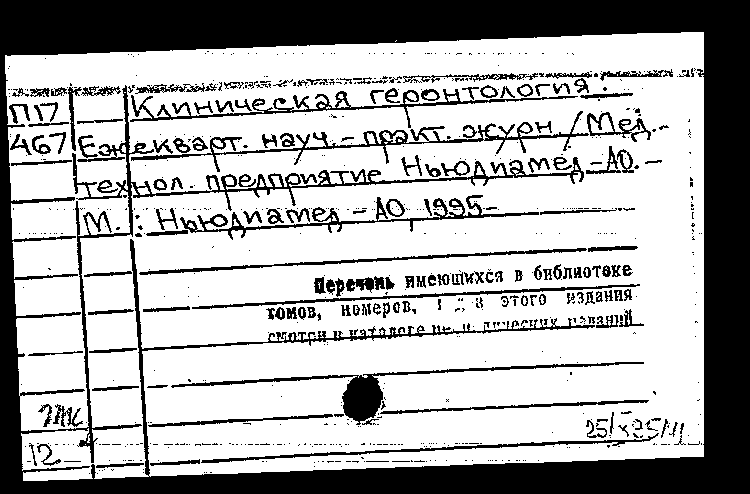 П17 Клиническая геронтология:
467 Ежекварт. науч.-практ. журн. / Мед.-
технол. предприятие Ньюдиамед-АО.-
М.: Ньюдиамед-АО, 1995-
Перечень имеющихся в библиотеке
томов, номеров, этого издания
смотри в каталоге названий
12